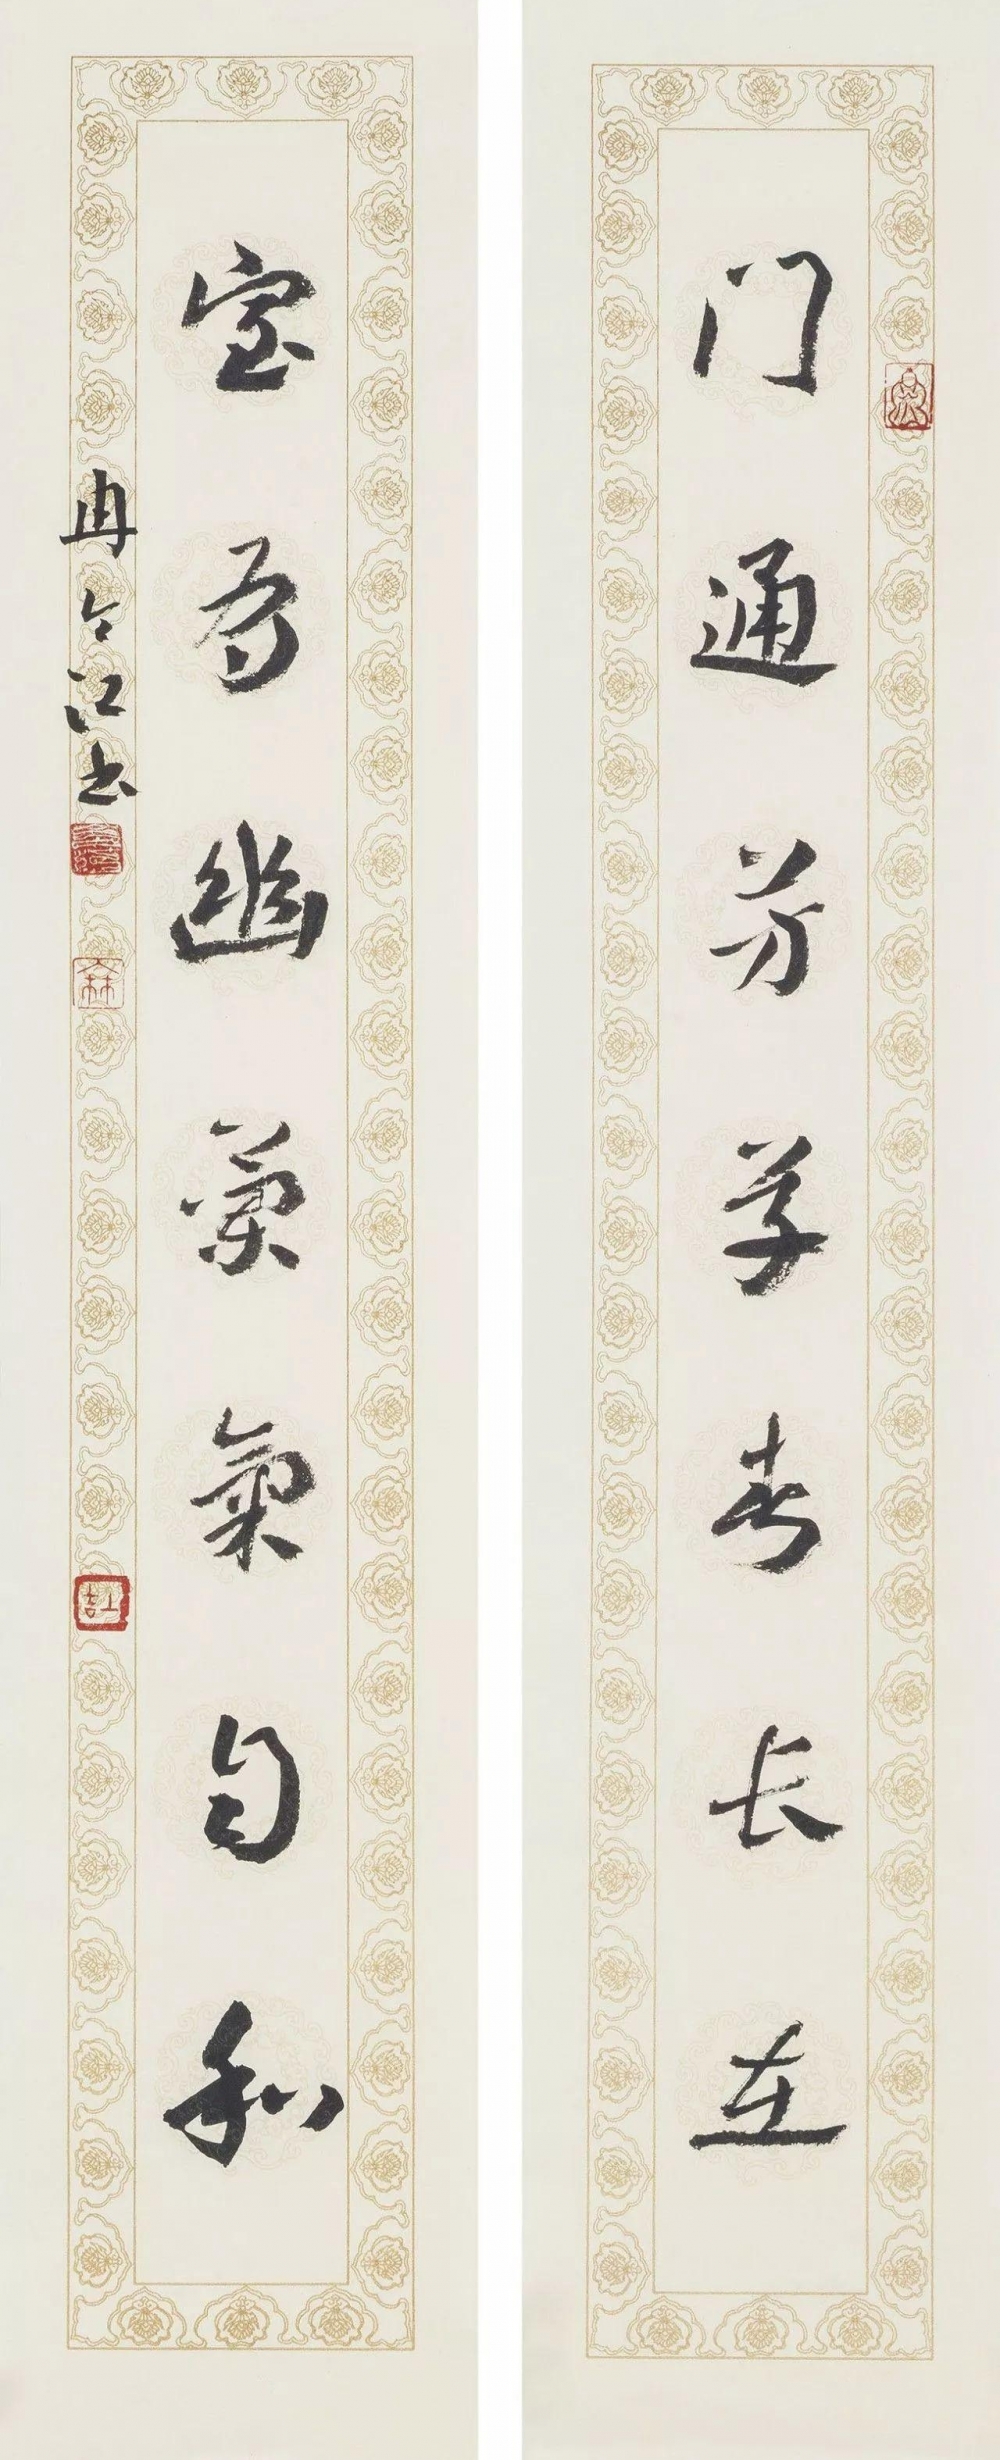 门通芳草春长在
室有幽兰气自和
冉令江书